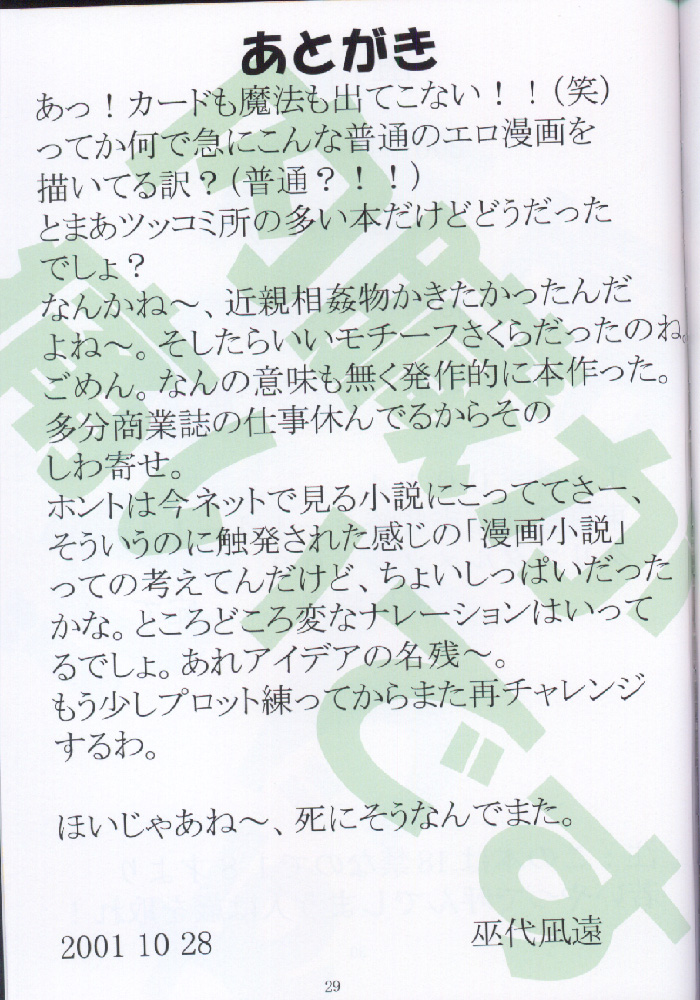 あとがき
あっ！カードも魔法も出てこない！！(笑)
ってか何で急にこんな普通のエロ漫画を
描いてる訳？(普通？！！)
とまあツッコミ所の多い本だけどどうだった
でしょ？
なんかね～、近親相姦物かきたかったんだ
よね～。そしたらいいモチーフさくらだったのね。
ごめん。なんの意味も無く発作的に本作った。
多分商業誌の仕事休んでるからその
しわ寄せ。
ホントは今ネットで見る小説にこっててさー、
そういうのに触発された感じの「漫画小説」
っての考えてんだけど、ちょいしっぱいだった
かな。ところどころ変なナレーションはいって
るでしょ。あれアイデアの名残～。
もう少しプロット練ってからまた再チャレンジ
するわ。
ほいじゃあね～、死にそうなんでまた。
2001 10 28
巫代凪遠
29